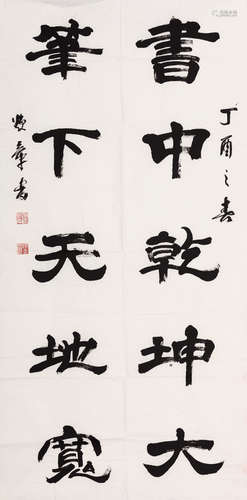 丁酉之春
書中乾坤大
筆下天地寬